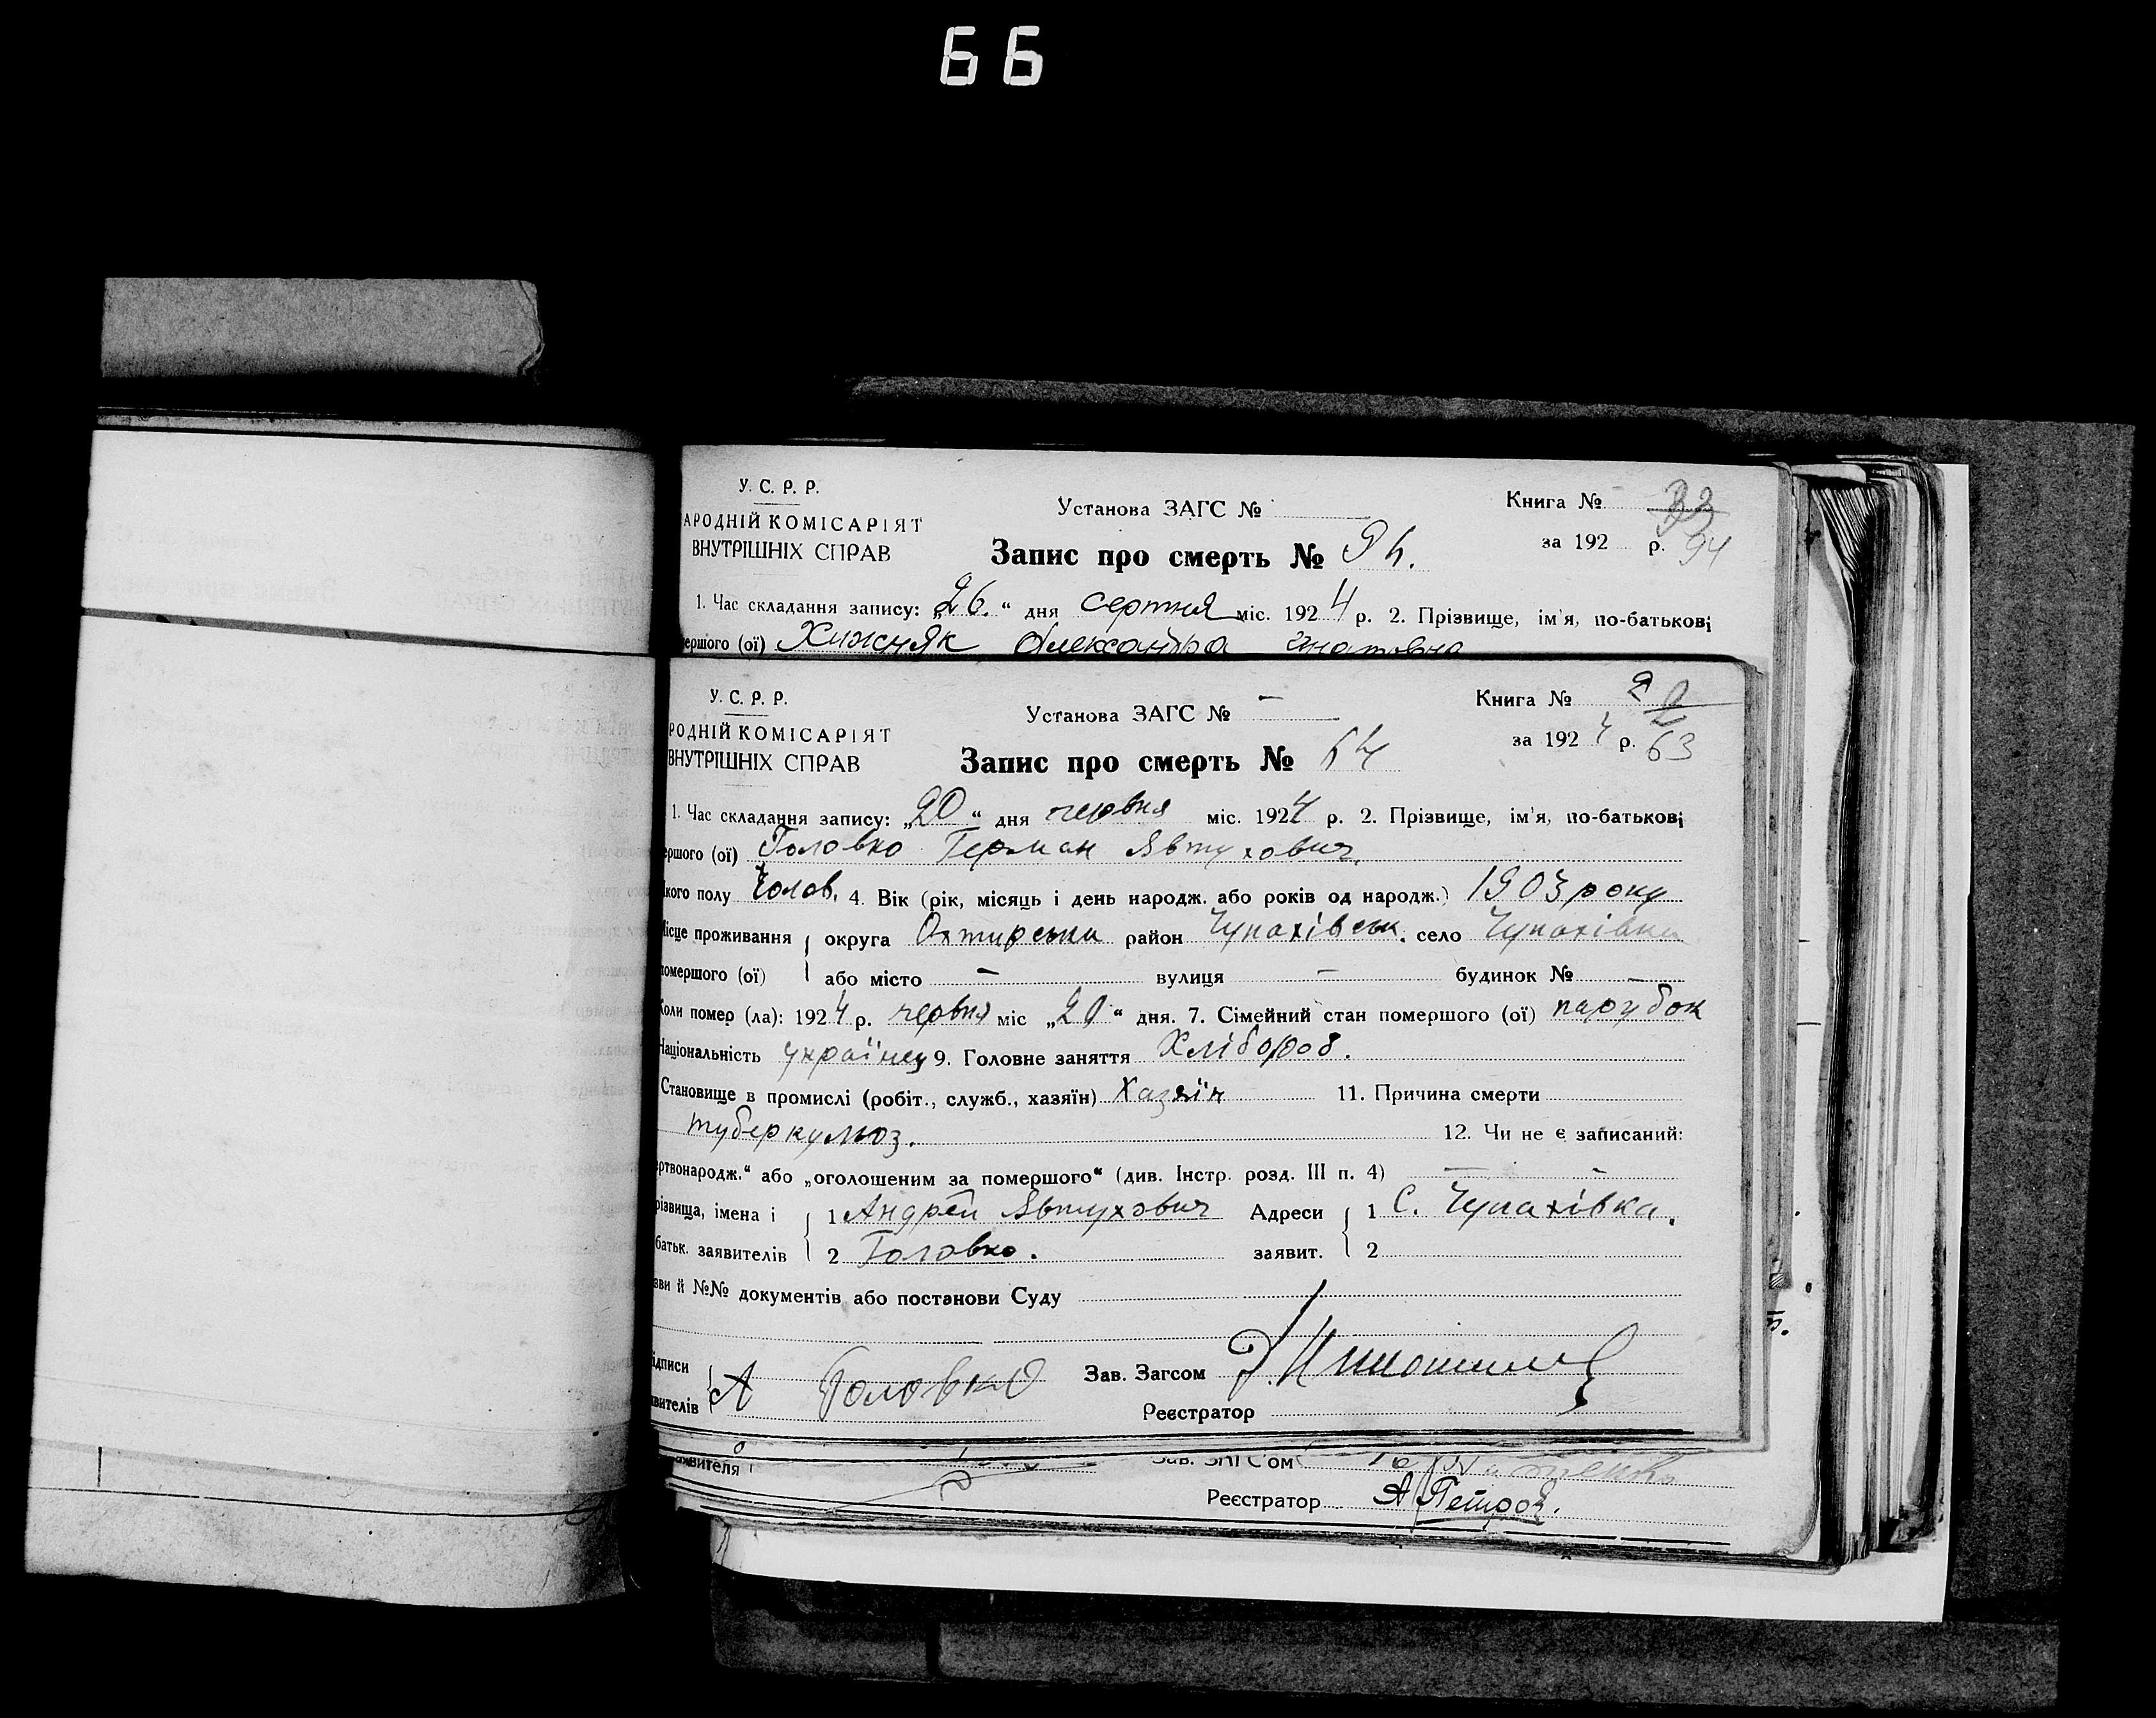 66
У. С. Р. Р.
АРОДНІЙ КОМІСАРІЯТ
ВНУТРІШНІХ СПРАВ
Установа ЗАГС №
Книга №
Запис про смерть № 94.
за 192 р. 94
1. Час складання запису: „26.“ дня серпня міс. 1924 р. 2. Прізвище, ім'я, по-батькові
ершого (ої) Хижняк Олександра
У. С. Р. Р.
РОДНІЙ КОМІСАРІЯТ
ВНУТРІШНІХ СПРАВ
Установа ЗАГС № —
Книга № 2
Запис про смерть № 64
за 1924 р. 63
1. Час складання запису: „20“ дня червня міс. 1924 р. 2. Прізвище, ім'я, по-батькові
ершого (ої) Головко Герман Явтухович.
кого полу Чолов. 4. Вік (рік, місяць і день народж. або років од народж.) 1903 року
Місце проживання округа Охтирська район Чупахівськ. село Чупахівка
помершого (ої) або місто — вулиця — будинок № —
Коли помер (ла): 1924 р. червня міс „20“ дня. 7. Сімейний стан помершого (ої) парубок
Національність українец 9. Головне заняття Хлібороб.
Становище в промислі (робіт., служб., хазяїн) Хазяїн 11. Причина смерти
туберкульоз. 12. Чи не є записаний:
ертвонародж.“ або „оголошеним за помершого“ (див. Інстр. розд. III п. 4) — —
різвища, імена і 1 Андрей Явтухович Адреси 1 С. Чупахівка.
батьк. заявителів 2 Головко. заявит. 2
зви й №№ документів або постанови Суду
ідписи
явителів А Головко Зав. Загсом
Реєстратор
явителя Зав. ЗАГС'ом
Реєстратор А Петров.